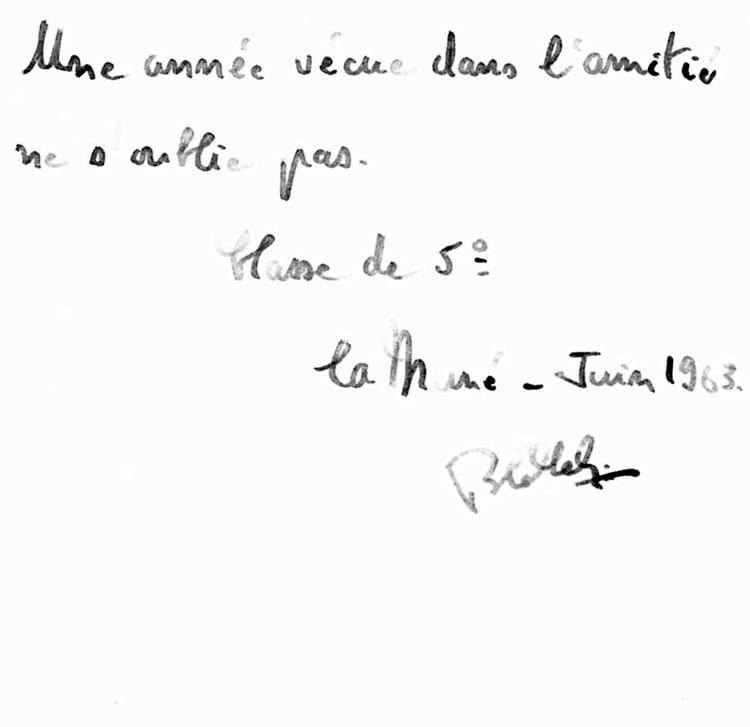 Une année vécue dans l'amitié
ne s'oublie pas.
Classe de 5e
La Mané - Juin 1963.